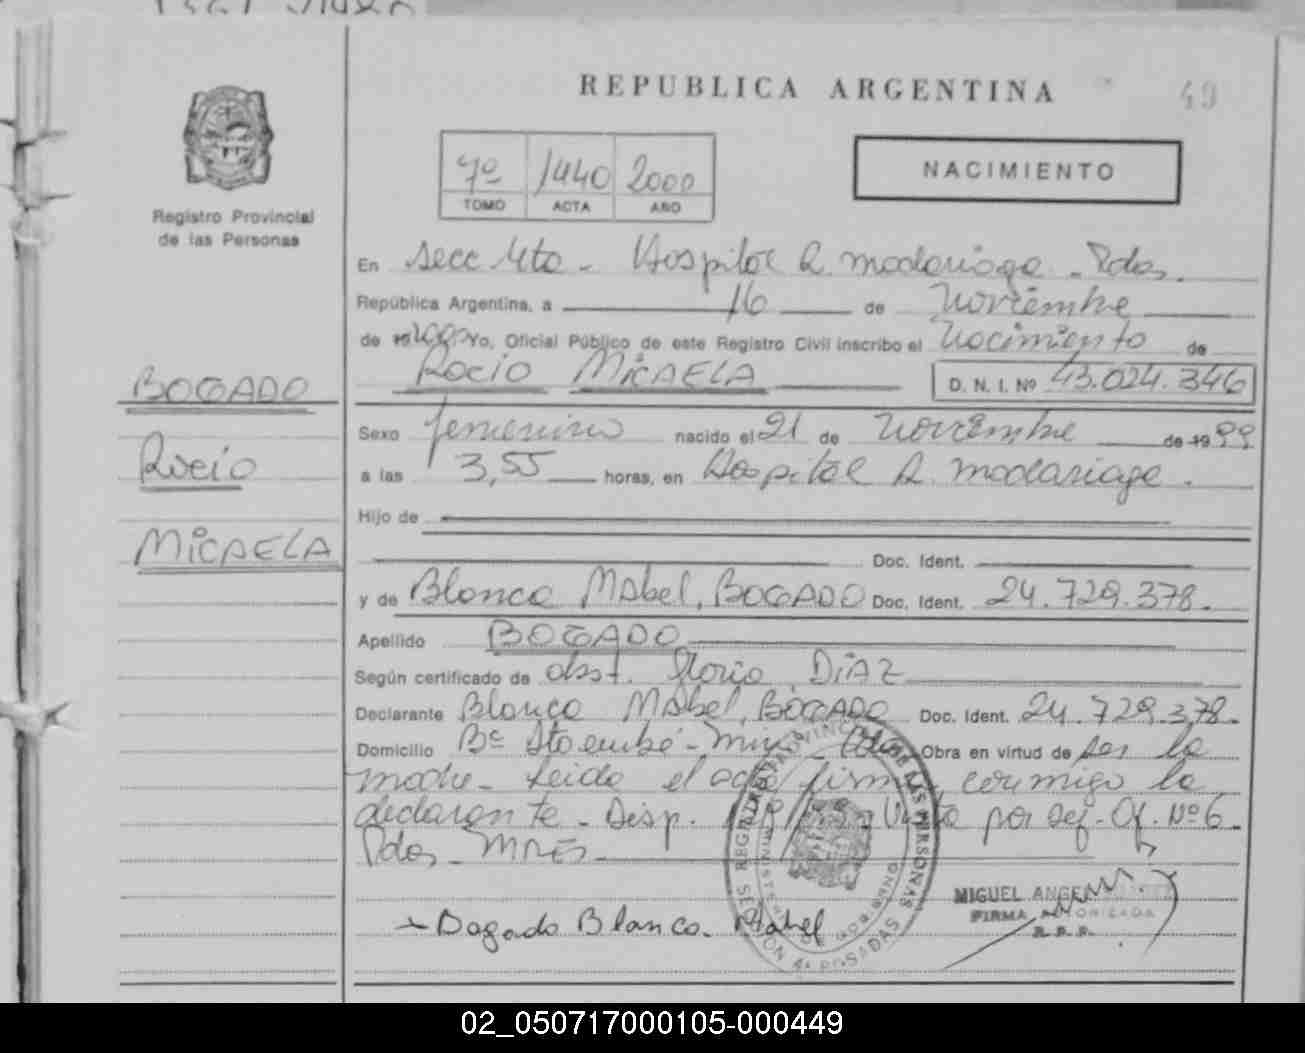 REPUBLICA ARGENTINA
49
Registro Provincial
de las Personas
7º 1440 2000
TOMO ACTA AÑO
NACIMIENTO
En Secc 4ta - Hospital R. Madariaga - Pdas.
República Argentina, a 16 de Noviembre
de 2000 Yo, Oficial Público de este Registro Civil inscribo el Nacimiento de
Rocio MICAELA D. N. I. Nº 43.024.346
BOGADO
Rocio
MICAELA
Sexo femenino nacido el 21 de Noviembre de 1999
a las 3,55 horas, en Hospital R. Madariaga.
Hijo de
Doc. Ident.
y de Blanca Mabel, BOGADO Doc. Ident. 24.729.378.
Apellido BOGADO
Según certificado de obst. Gloria DIAZ
Declarante Blanca Mabel, BOGADO Doc. Ident. 24.729.378.
Domicilio Bº Obra en virtud de ser la
madre - Leida el acta firma conmigo la
declarante - Disp. por Def. Of. Nº 6
Pdas - MNES -
REGISTRO PROVINCIAL DE LAS PERSONAS
MINISTERIO DE GOBIERNO
SECCION 4ª POSADAS
MIGUEL ANGEL
FIRMA AUTORIZADA
R. P. P.
Bogado Blanca Mabel
02_050717000105-000449